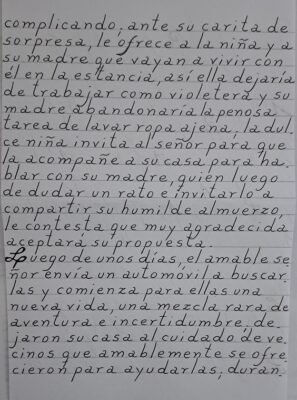 complicando, ante su carita de
sorpresa, le ofrece a la niña y a
su madre que vayan a vivir con
él en la estancia, así ella dejaría
de trabajar como violetera y su
madre abandonaría la penosa
tarea de lavar ropa ajena, la dul_
ce niña invita al señor para que
la acompañe a su casa para ha_
blar con su madre, quién luego
de dudar un rato e invitarlo a
compartir su humilde almuerzo,
le contesta que muy agradecida
aceptará su propuesta.
Luego de unos días, el amable se_
ñor envía un automóvil a buscar_
las y comienza para ellas una
nueva vida, una mezcla rara de
aventura e incertidumbre, de_
jaron su casa al cuidado de ve_
cinos que amablemente se ofre_
cieron para ayudarlas; duran_